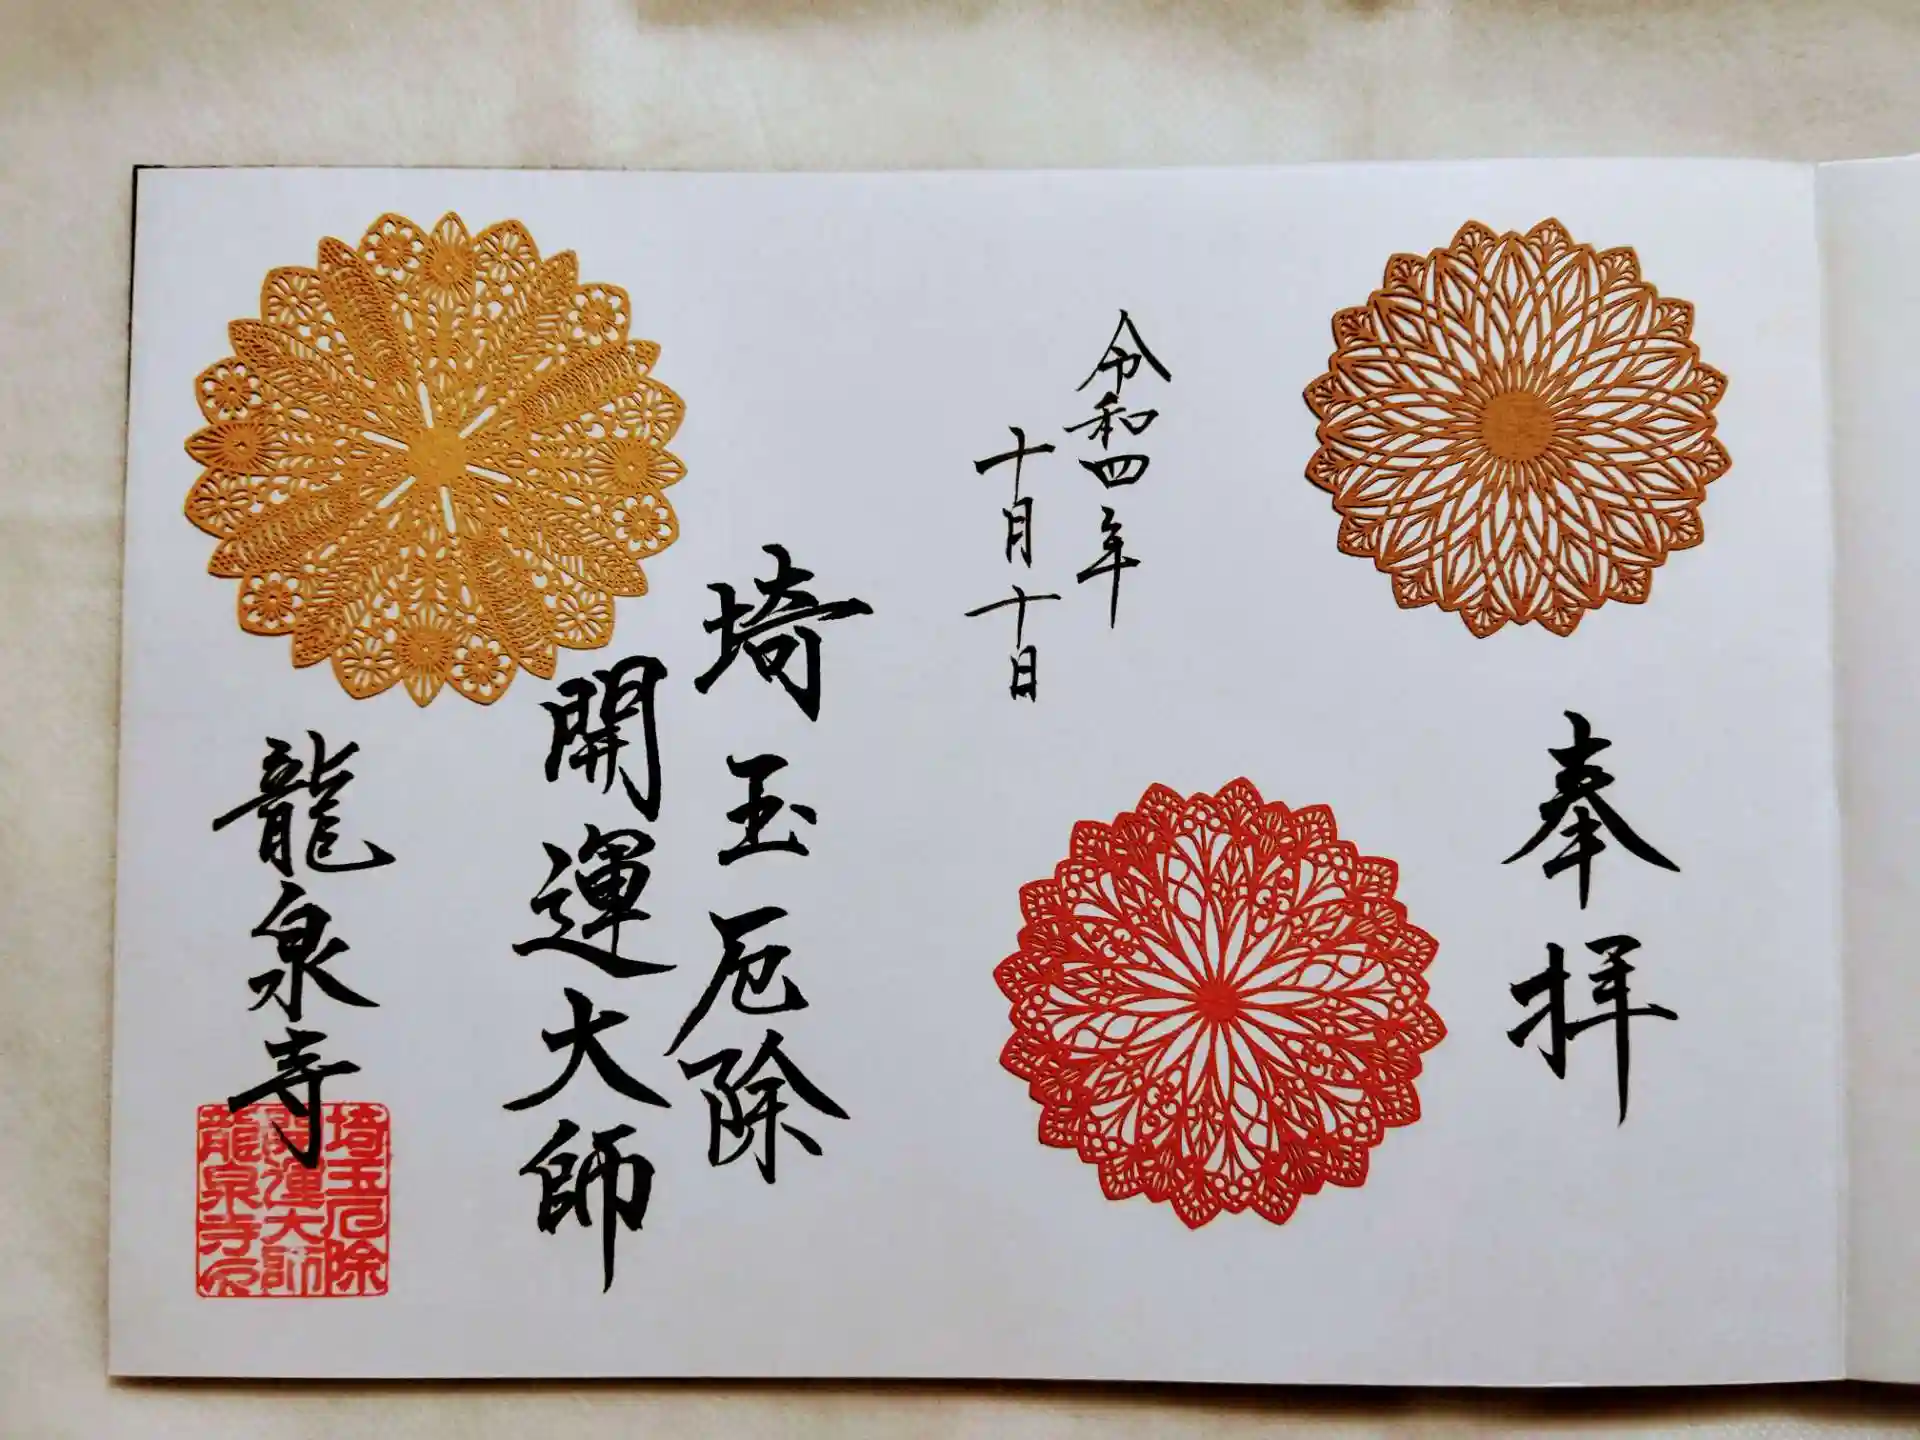 奉拝
令和四年
十月十日
埼玉厄除
開運大師
龍泉寺
埼玉厄除
開運大師
龍泉寺印